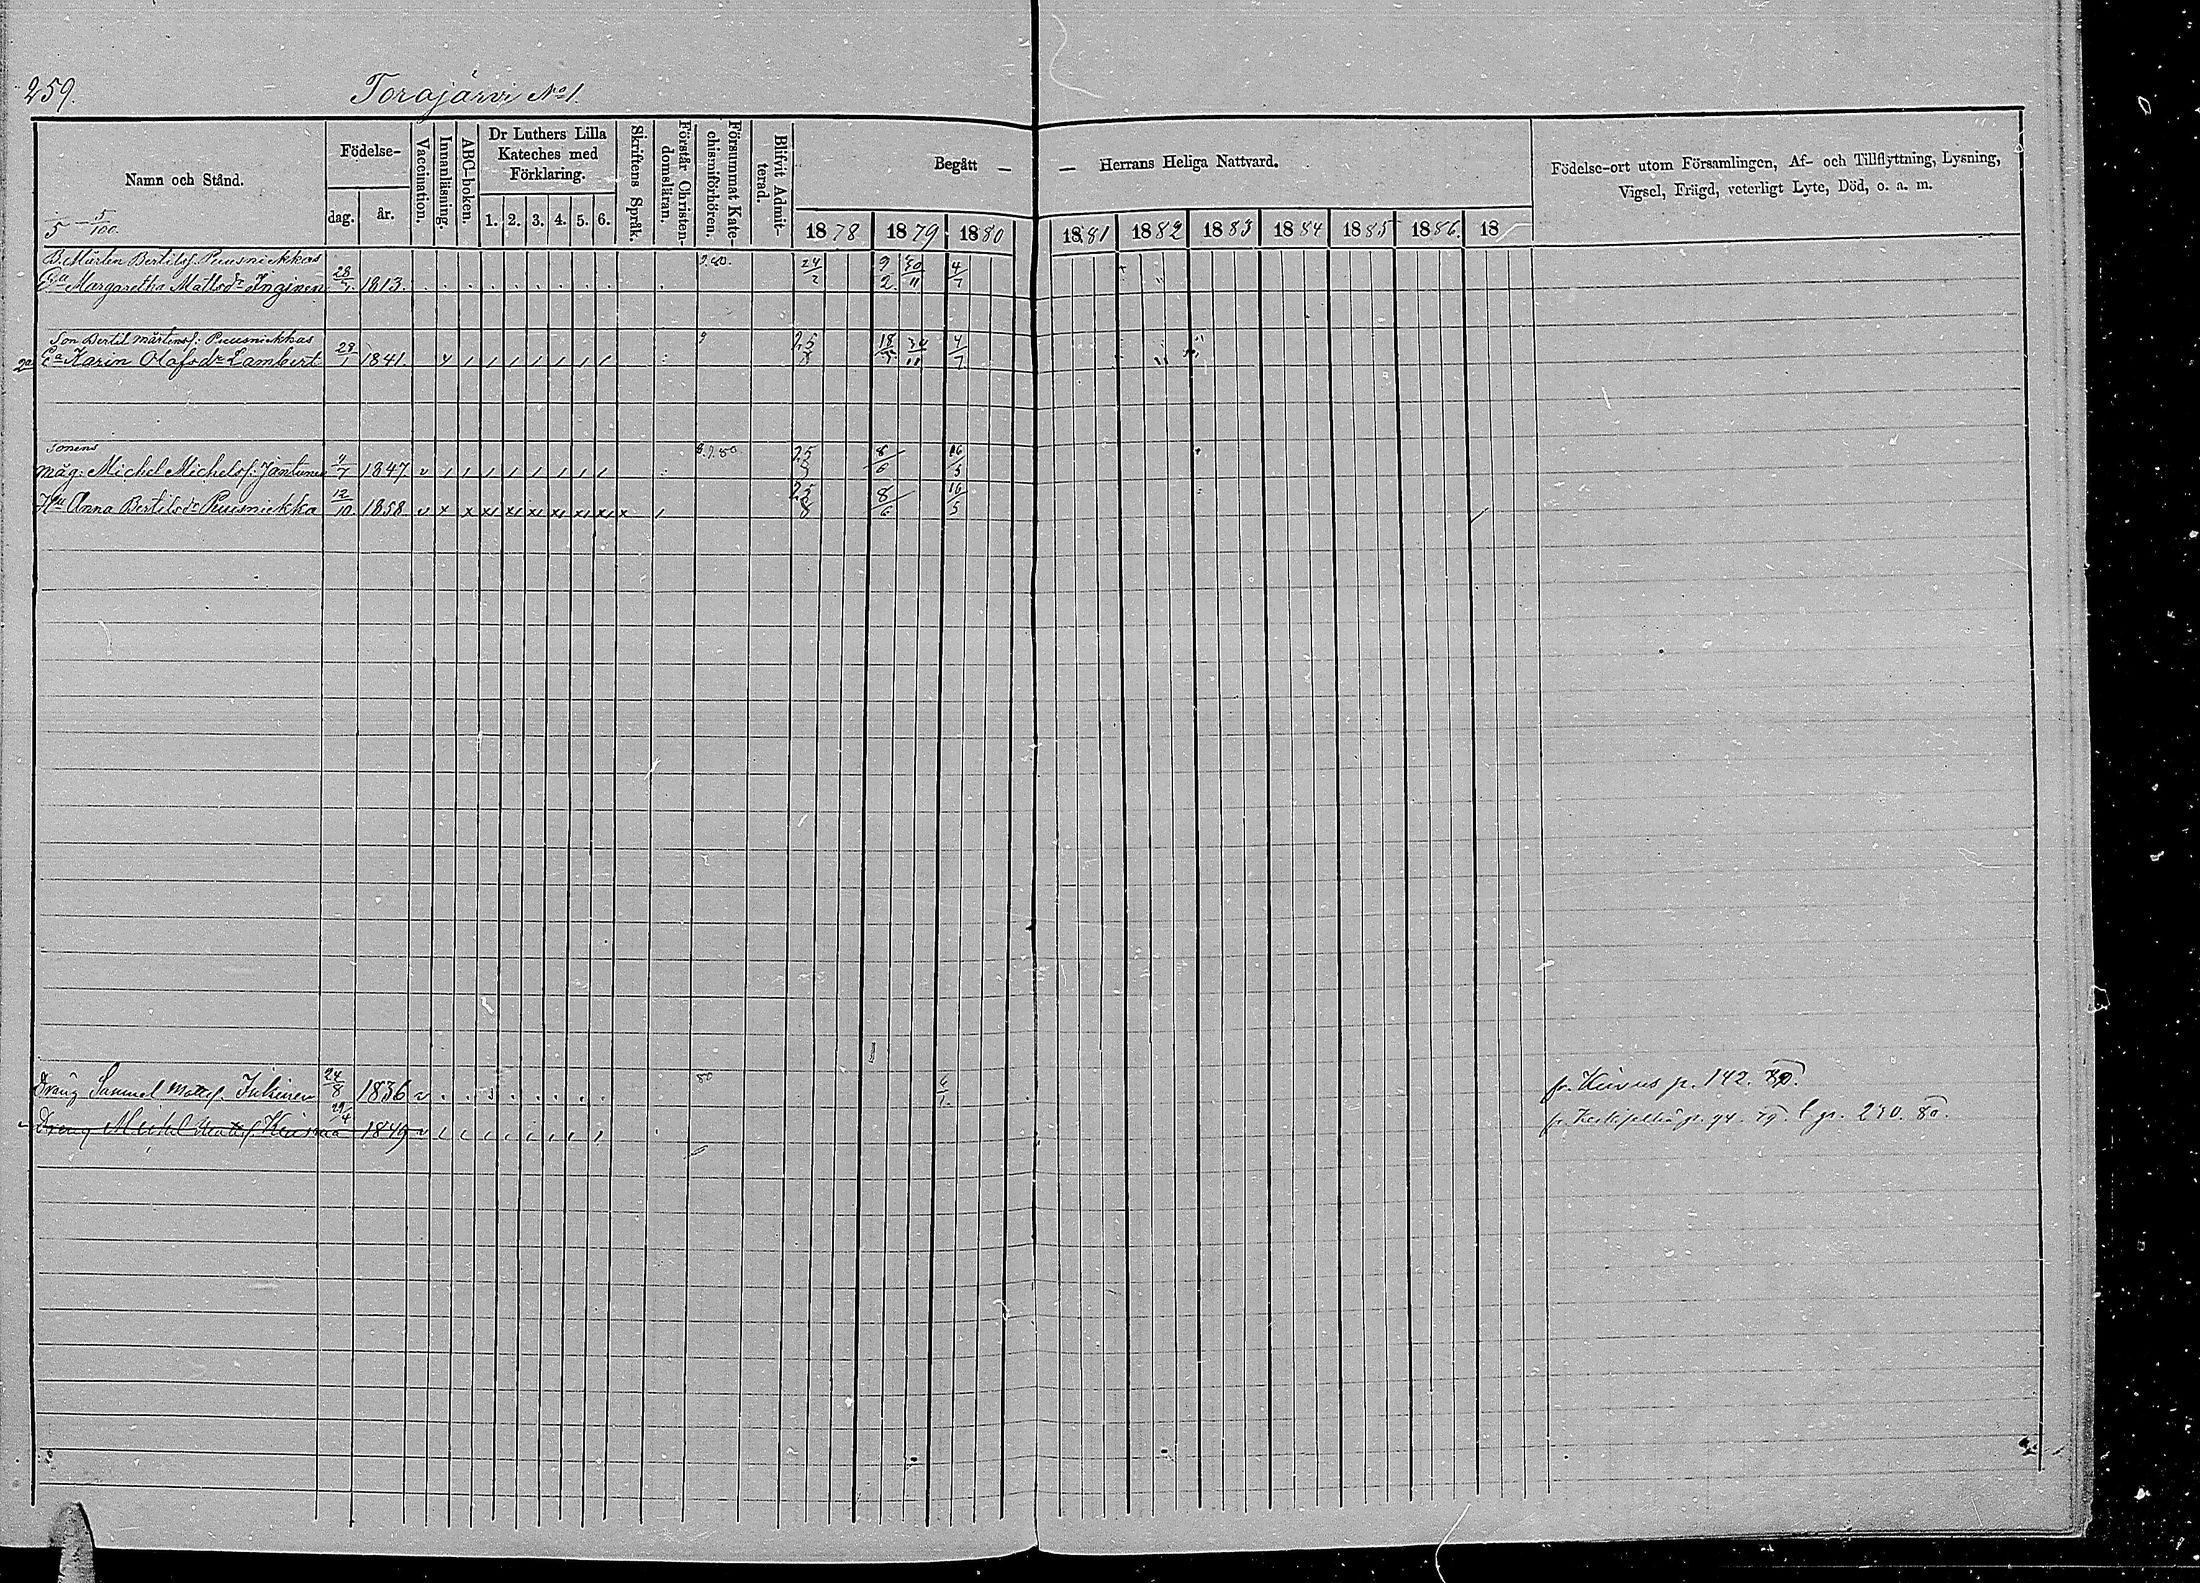 259.
Torajärvi No 1.
Namn och Stånd.
Födelse-
dag.
år.
Vaccination.
Innanläsning.
ABC-boken.
Dr Luthers Lilla
Kateches med
Förklaring.
1. 2. 3. 4. 5. 6.
Skriftens Språk.
Förstår Christen-
domsläran.
Försummat Kate-
chismiförhören.
Blifvit Admit-
terad.
Begått — — Herrans Heliga Nattvard.
1878 1879 1880 1881 1882 1883 1884 1885 1886. 18
Födelse-ort utom Församlingen, Af- och Tillflyttning, Lysning,
Vigsel, Frägd, veterligt Lyte, Död, o. a. m.
5 5/100.
B. Mårten Bertilsf. Puusniekkas 9.80. 24/2 9/2 30/11 4/7
Ea Margaretha Mattsdr Inginen 28/7. 1813.
Son Bertil Mårtensf: Puusniekkas 9 25/8 18/7 4/7
2a Ea Karin Olofsdr Lambert 28/1 1841.
Sonens
måg: Michel Michelsf: Jantunen 4/7 1847. 9.9.80 25/8 8/6 16/5
Hu Anna Bertilsdr Puusniekka 12/10. 1858 25/8 8/6 16/5
Dräng Samuel Mattsf. Inkinen 24/8 1836 80 6/1. fr. Kiurus p. 142. 80.
Dreng Mickel Mattsf. Kiisma 29/4 1849 p. 94. 79. l. p. 270. 80.